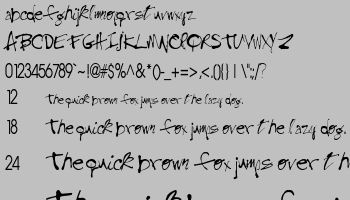 abcdefghijklmnopqrstuvwxyz
ABCDEFGHIJKLMNOPQRSTUVWXYZ
0123456789`~!@#$%^&*()-_+=>,<.0{} | \":;/?
12 The quick brown fox jumps over the lazy dog.
18 The quick brown fox jumps over the lazy dog.
24 The quick brown fox jumps over the